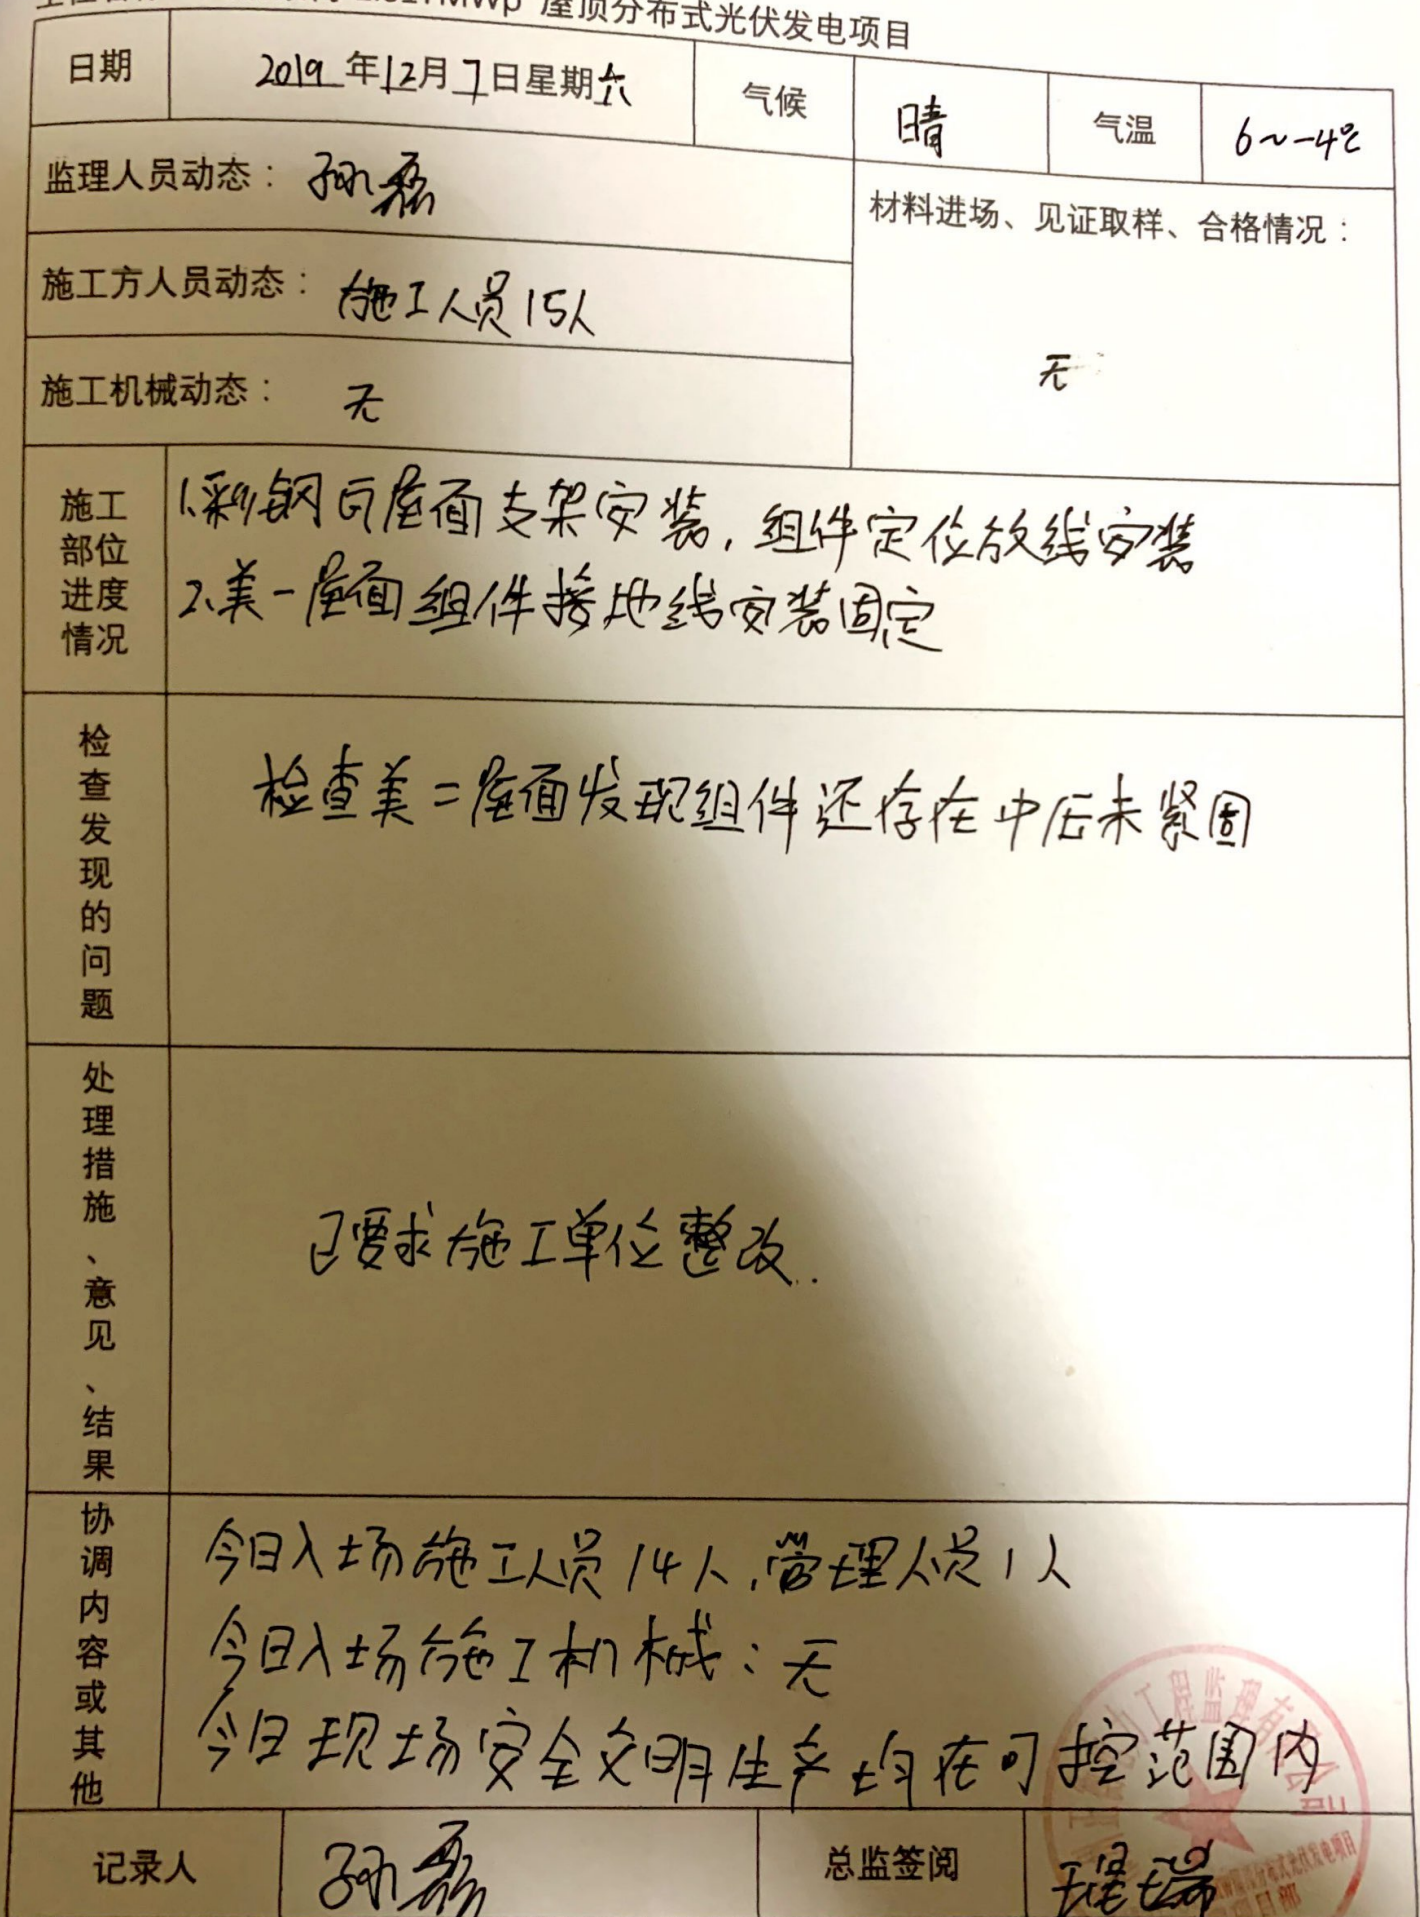 MWp 屋顶分布式光伏发电项目
日期 2019年12月7日星期六 气候 晴 气温 6~-4℃
监理人员动态：孙磊
材料进场、见证取样、合格情况：
无
施工方人员动态：施工人员15人
施工机械动态：无
施工部位进度情况
1.彩钢瓦屋面支架安装，组件定位放线安装
2.美一屋面组件接地线安装固定
检查发现的问题
检查美二屋面发现组件还存在中压未紧固
处理措施、意见、结果
已要求施工单位整改.
协调内容或其他
今日入场施工人员14人，管理人员1人
今日入场施工机械：无
今日现场安全文明生产均在可控范围内
记录人 孙磊 总监签阅
工程监理有限公司
分布式光伏发电项目
项目部